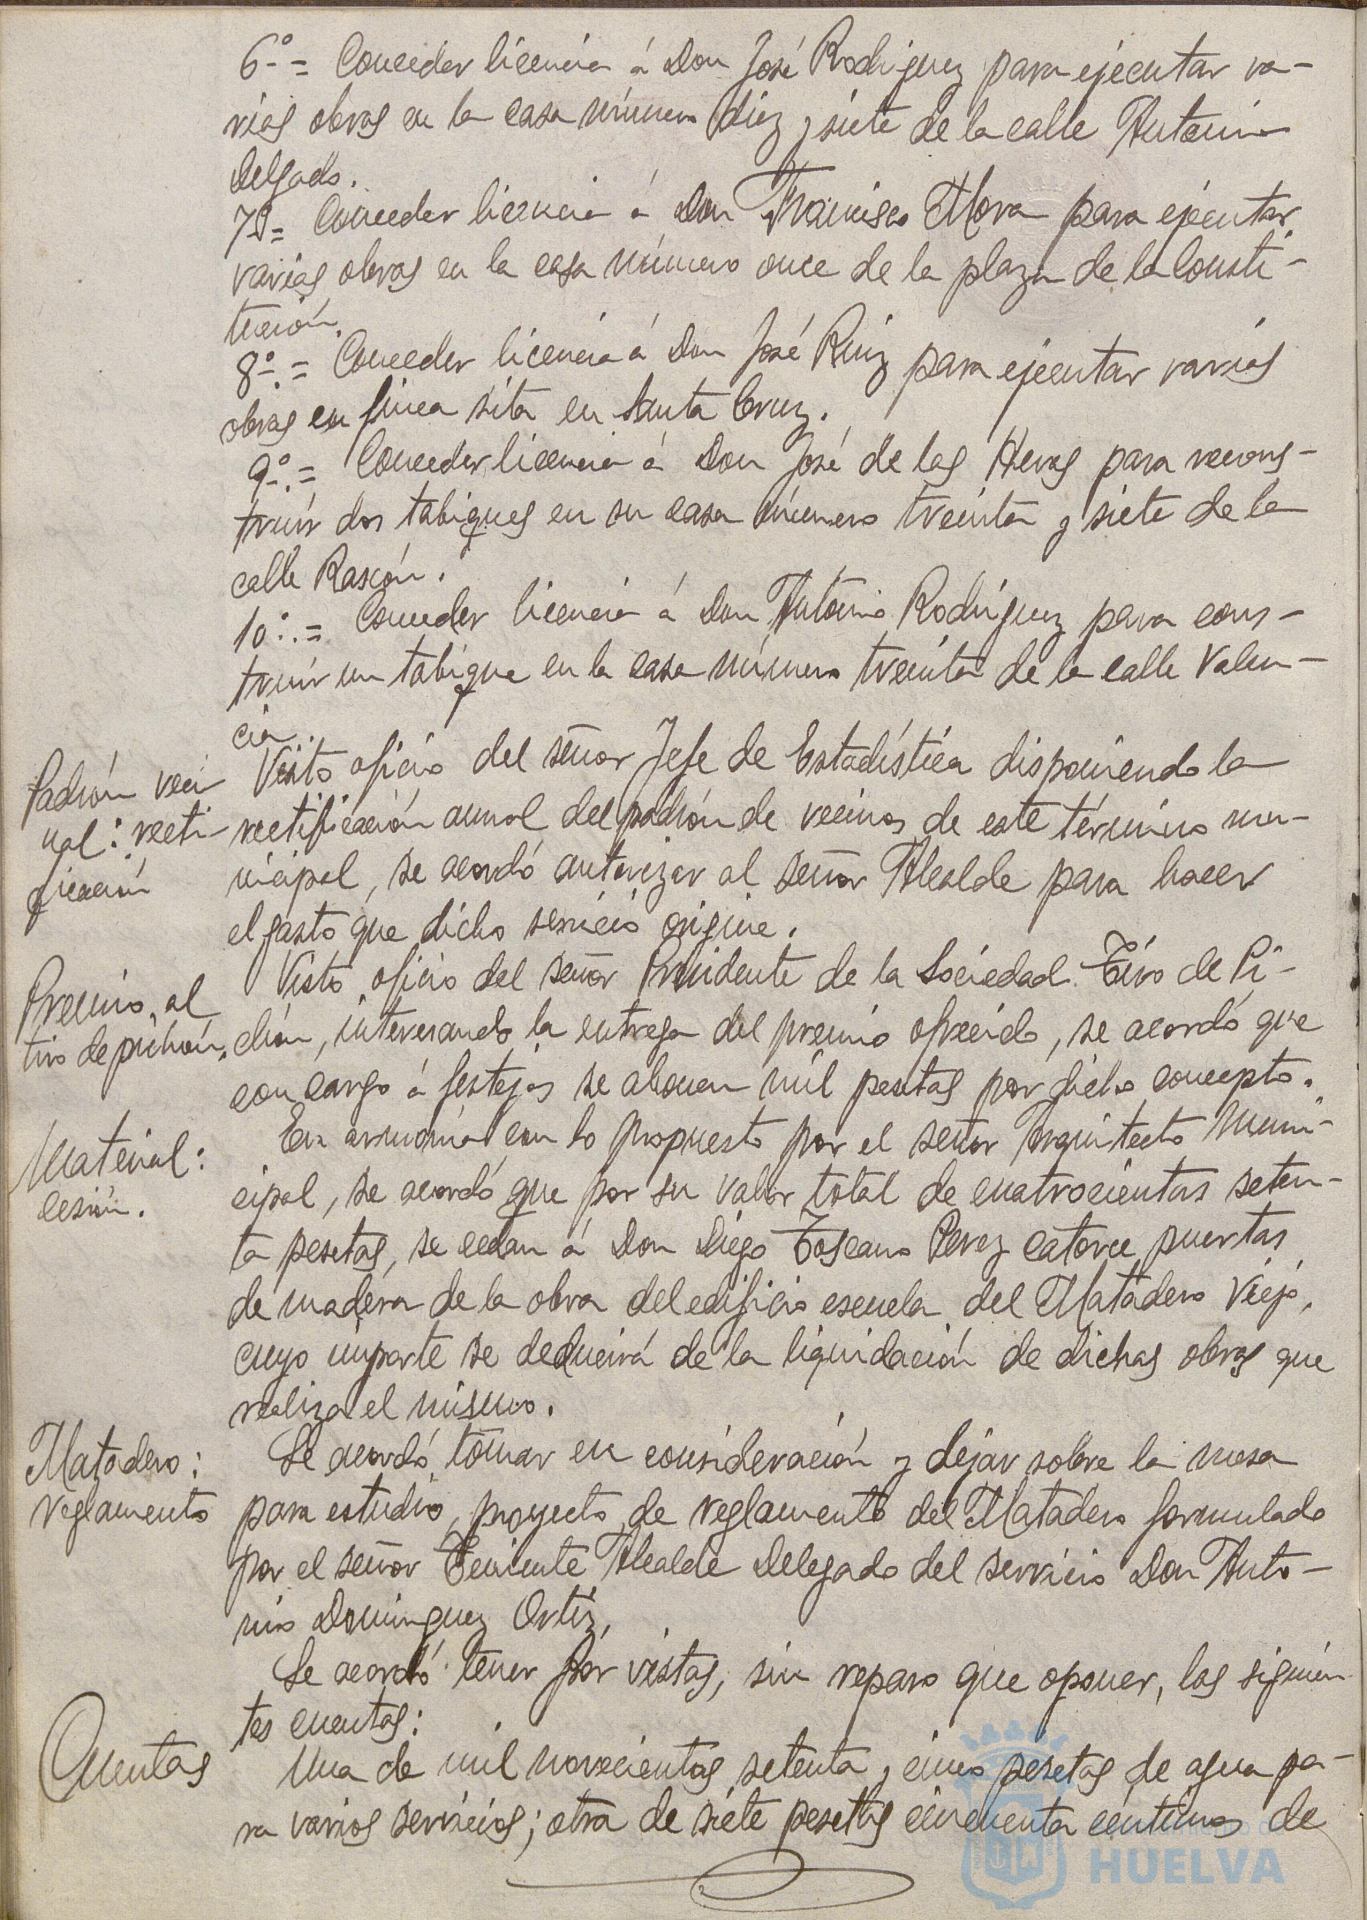 6º= Conceder licencia á Don José Rodriguez para ejecutar va-
rias obras en la casa número diez y siete de la calle Antonio
Delgado.
7º= Conceder licencia á Don Francisco Mora para ejecutar
varias obras en la casa número once de la plaza de la Consti-
tución.
8º.= Conceder licencia á Don José Ruiz para ejecutar varias
obras en finca sita en Santa Cruz.
9º.= Conceder licencia á Don José de las Heras para recons-
truir dos tabiques en su casa número treinta y siete de la
calle Rascón.
10º.= Conceder licencia á Don Antonio Rodríguez para cons-
truir un tabique en la casa número treinta de la calle Valen-
cia.
Padrón veci
nal: recti-
ficación
Visto oficio del señor Jefe de Estadística disponiendo la
rectificación anual del padrón de vecinos de este término mu-
nicipal, se acordó autorizar al señor Alcalde para hacer
el gasto que dicho servicio origine.
Premio al
tiro de pichón.
Visto oficio del señor Presidente de la Sociedad Tiro de Pi-
chón, interesando la entrega del premio ofrecido, se acordó que
con cargo á festejos se abonen mil pesetas por dicho concepto.
Material:
cesión.
En armonía con lo propuesto por el señor Arquitecto Muni-
cipal, se acordó que por su valor total de cuatrocientas seten-
ta pesetas, se cedan á Don Diego Toscano Perez catorce puertas
de madera de la obra del edificio escuela del Matadero Viejo,
cuyo importe se deducirá de la liquidación de dichas obras que
realiza el mismo.
Matadero:
reglamento
Se acordó tomar en consideración y dejar sobre la mesa
para estudio, proyecto de reglamento del Matadero formulado
por el señor Teniente Alcalde Delegado del servicio Don Anto-
nio Dominguez Ortiz.
Se acordó tener por vistas, sin reparo que oponer, las siguien
tes cuentas:
Cuentas
Una de mil novecientas setenta y cinco pesetas de agua pa-
ra varios servicios; otra de siete pesetas cincuenta céntimos de
HUELVA